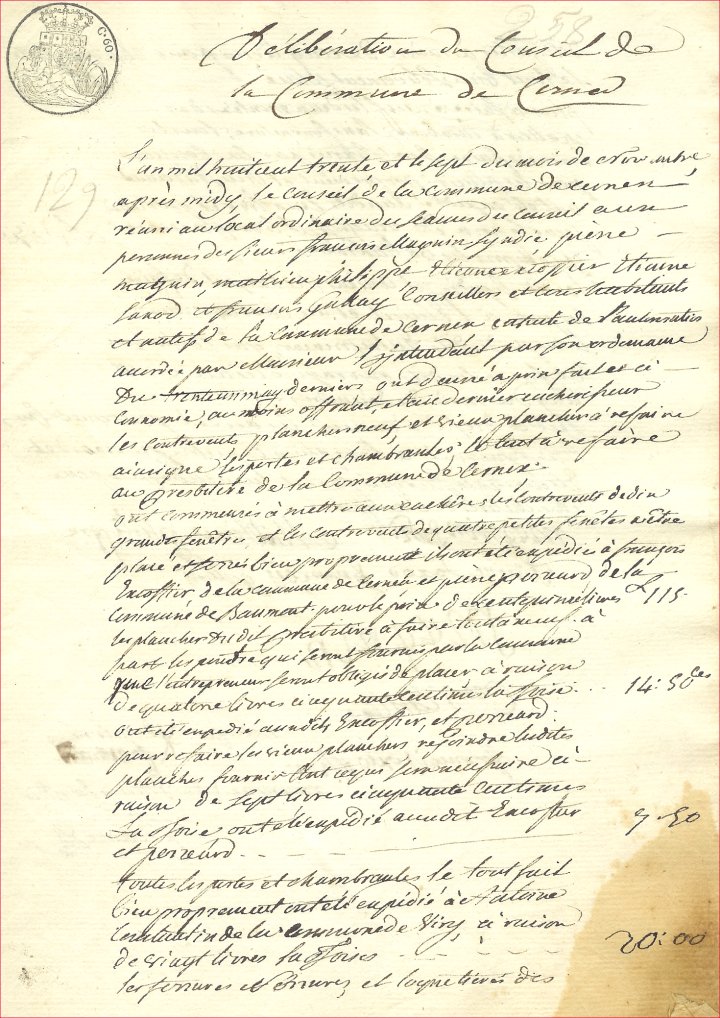 C. 60.
258
Délibération du Conseil de
la Commune de Cernex
129
L'an mil huit cent trente et le sept du mois de
après midy le conseil de la commune de cernex
réuni au local ordinaire des séances du conseil aux
personnes des sieurs francois Magnin Syndic pierre
magnin, mathieu philippe Etienne
et francois Conseillers et tous habitants
et natifs de la Commune de Cernex ensuite de l'autorisation
accordée par Monsieur l'jntendant par son ordonnance
Du trente un may derniers ont donné a prix fait et éc
conomie, au moins offrant, et au dernier encherisseur
les contrevents, planchers neuf et vieux planchers à refaire
les portes et chambranles le tout à refaire
au presbitère de la Commune de Cernex.
ont commencés à mettre aux enchères les contrevents de dix
grande fenêtres et les contrevents de quatre petites fenêtes mêtre
place et ferrés bien proprement ils ont été expédiés à françois
Encoffier de la commune de Cernex et pierre de la
Commune de Baumont, pour le prix de cent quinze livres L 115.
les plancher du dit presbitère à faire tout à neuf à
part les poudre qui seront fournis par la commune
que l'entrepreneur seront obligés de placer à raison
de quatorze livres cinquante centimes la toise... 14: 50 ces
ont été expédié aux dits Encoffier, et perreard.
pour refaire les vieux planchers rejoindre ludites
planches fournir tout ce qui sera nécessaire à
raison de sept livres cinquante centimes
La toise ont été expédié aux dit Encoffier 7.50
et perreard.
toutes les portes et chambranles le tout fait
bien proprement ont été expédié à Antoine
de la commune de Viry à raison
de vingt livres la toises 20:00
les ferrures et serrures, et loquetières des